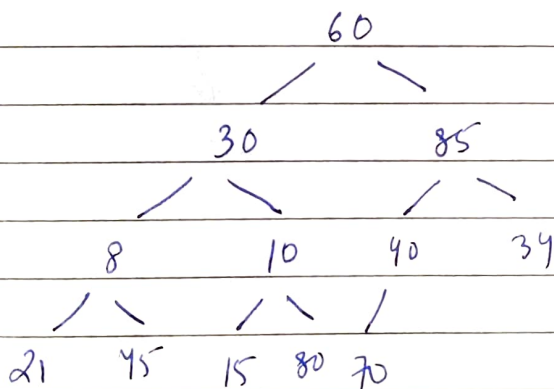 60
30 85
8 10 40 34
21 45 15 80 70